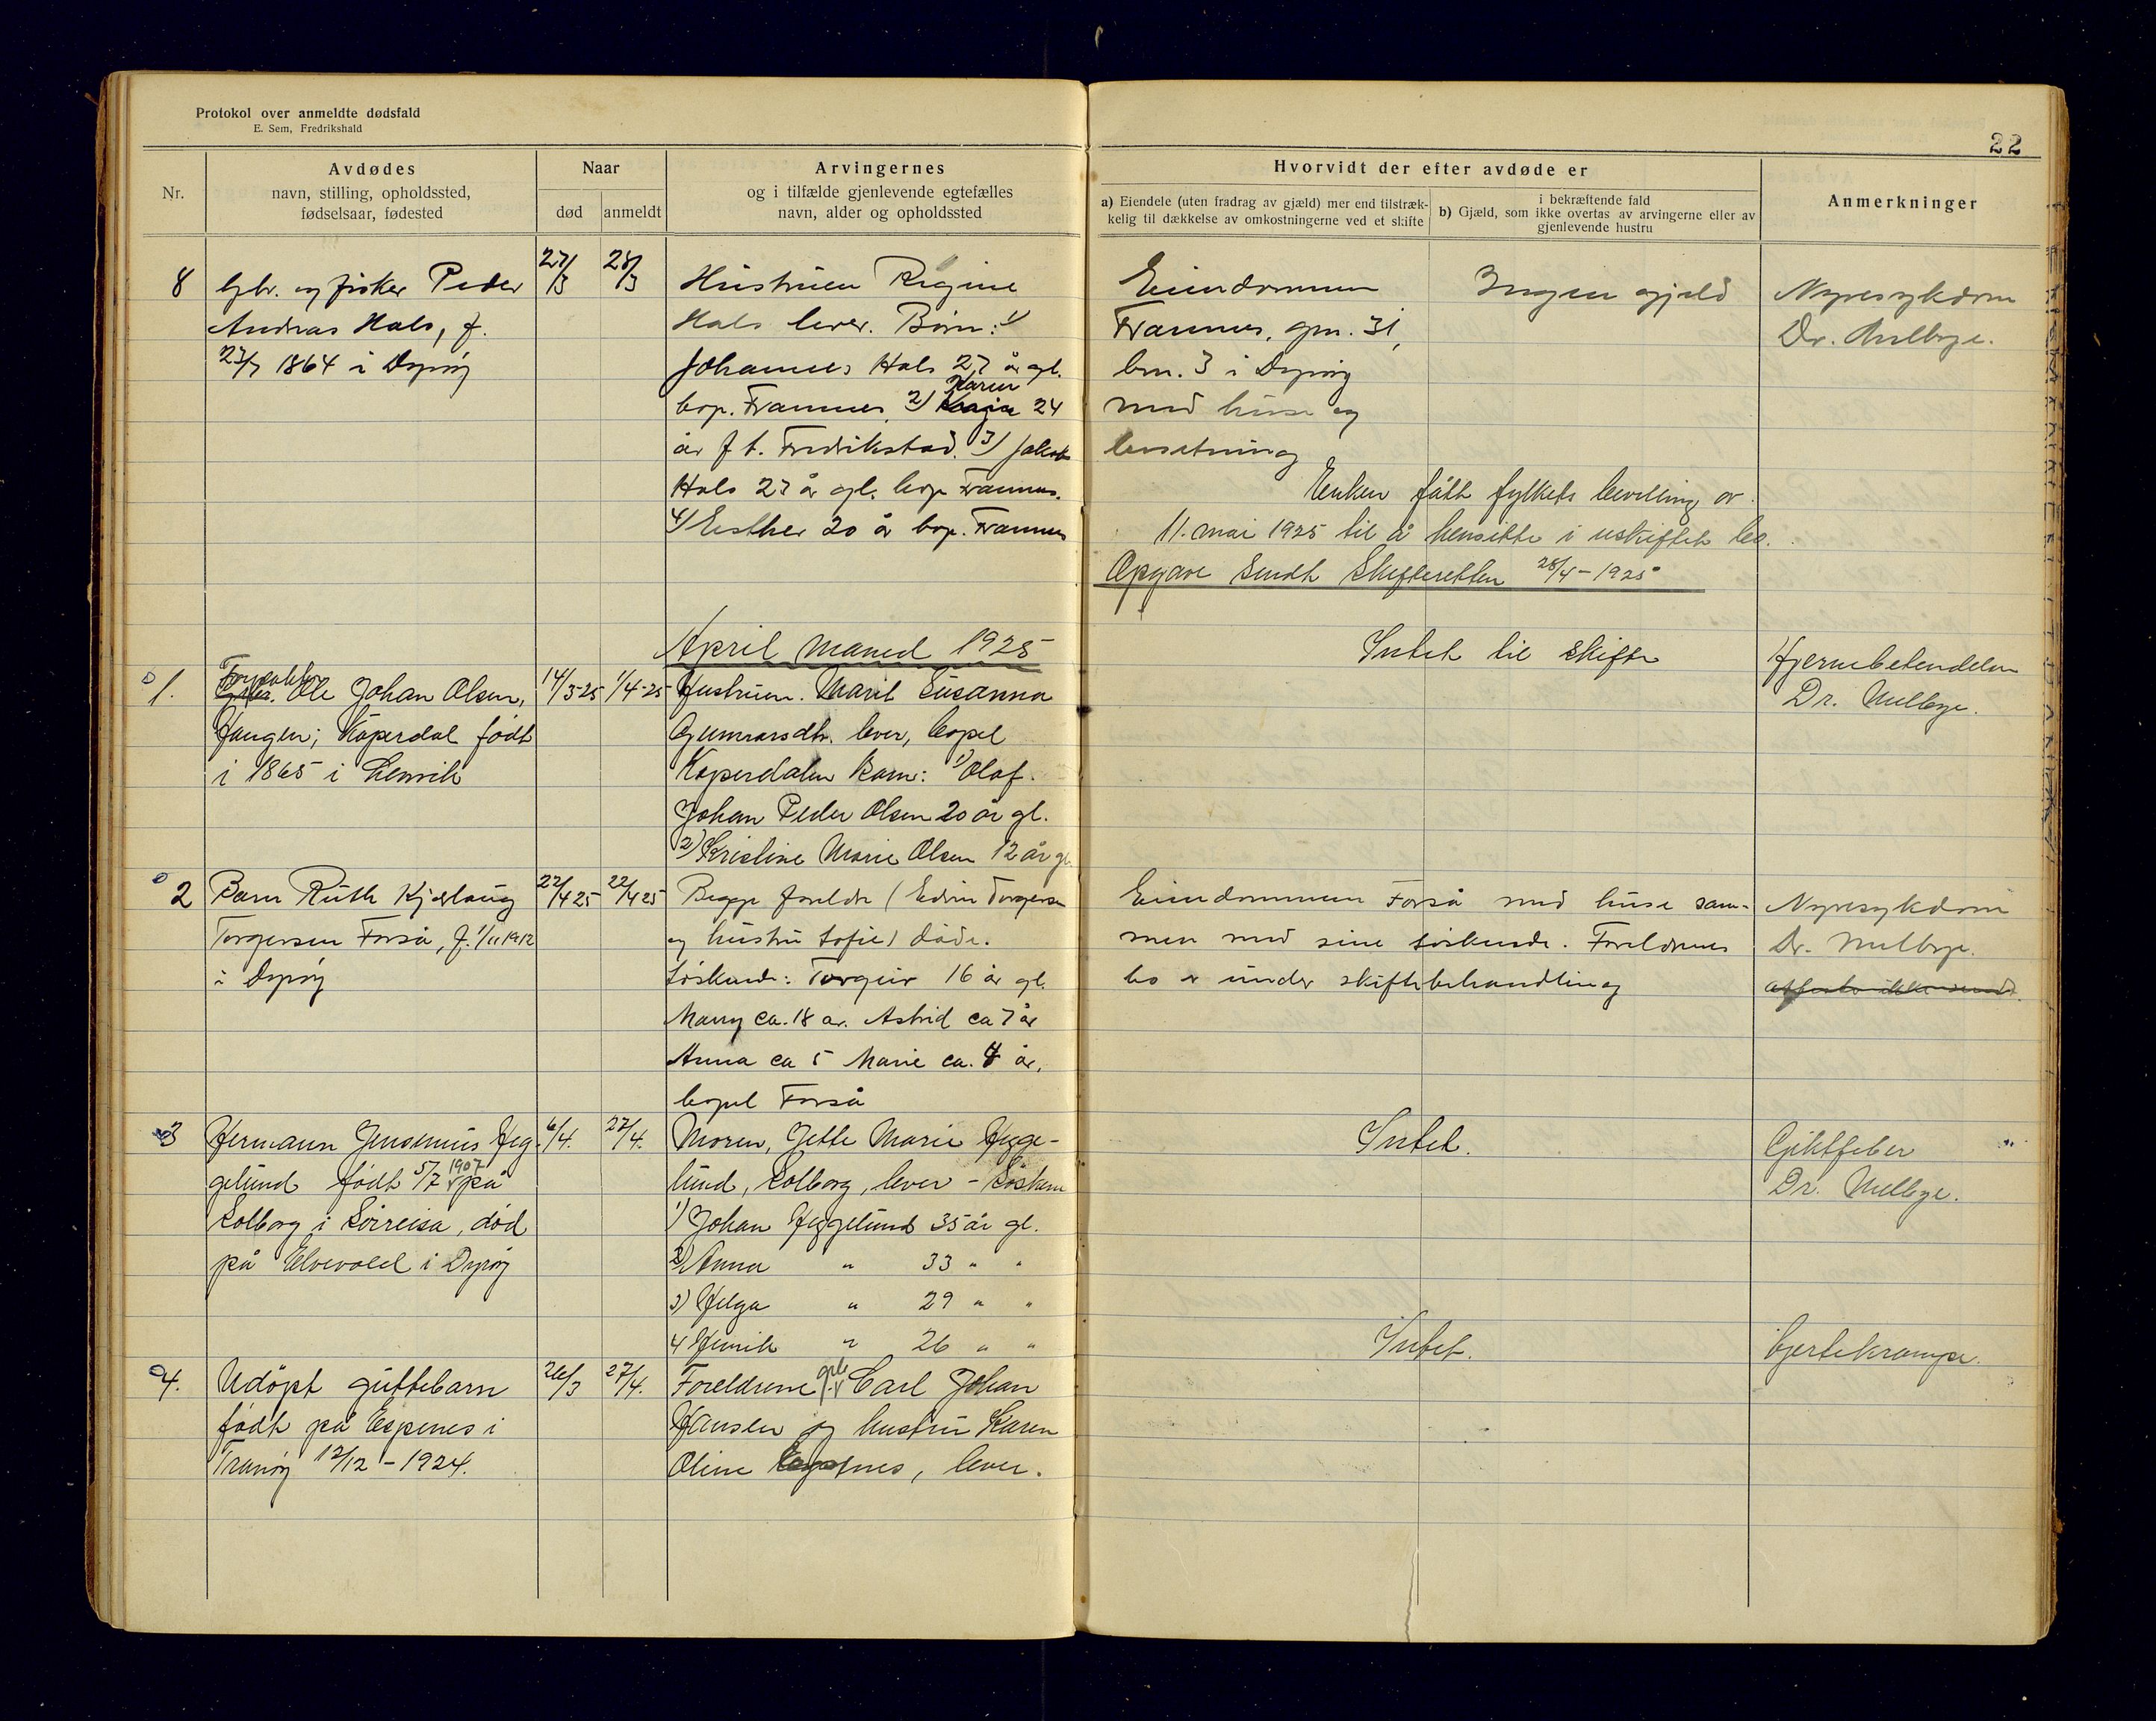 Protokol over anmeldte dødsfald
E. Sem, Fredrikshald
22
Nr.
Avdødes
navn, stilling, opholdssted,
fødselsaar, fødested
Naar
død
anmeldt
Arvingernes
og i tilfælde gjenlevende egtefælles
navn, alder og opholdssted
Hvorvidt der efter avdøde er
a) Eiendele (uten fradrag av gjæld) mer end tilstræk-
kelig til dækkelse av omkostningerne ved et skifte
i bekræftende fald
b) Gjæld, som ikke overtas av arvingerne eller av
gjenlevende hustru
Anmerkninger
8
Gbr. og fisker Peder
Andreas Hals, f.
23/7 1864 i Dyrøy
27/3
28/3
Hustruen Regine
Hals lever. Børn: 1)
Johannes Hals 27 år gl.
bop. Frannes. 2) Karen 24
år f t. Fredrikstad. 3) Jakob
Hals 23 år gl. bop Frannes.
4) Esther 20 år bop. Frannes
Eiendommen
Frannes, gnr. 31,
bnr. 3 i Dyrøy
med huse og
besetning
Ingen gjæld
Nyresykdom
Dr. Melbye.
Enken fått fylkets bevilling av
11. mai 1925 til å hensitte i uskiftet bo.
Opgave sendt Skifteretten 28/4-1925
April Maned 1925
1.
Ole Johan Olsen,
Haugen; Kaperdal født
i 1865 i Lenvik
14/3-25
1/4-25
Hustruen. Marit Susanna
Gunnarsdtr. lever, bopel
Kaperdalen Barn: 1) Olaf
Johan Peder Olsen 20 år gl.
2) Kristine Marie Olsen 12 år gl.
Intet til skifte
Hjernebetendelse
Dr. Melbye.
2
Barn Ruth Kjellaug
Torgersen Forså, f. 1/11 1912
i Dyrøy
22/4 25
22/4 25
Begge foreldre (Edvin Torgersen
og hustru Sofie) døde.
Søskende: Torgeir 16 år gl.
Marry ca. 18 ar. Astrid ca 7 år
Anna ca 5 Marie ca. 4 år,
bopel Forså
Eiendommen Forså med huse sam-
men med sine søskende. Foreldrenes
bo er under skiftebehandling
Nyresykdom
Dr. Melbye.
attester ikke sendt.
3
Hermann Jensenius Heg-
gelund født 5/7 1907 på
Solborg i Sørreisa, død
på Elvevold i Dyrøy
6/4.
27/4.
Moren, Jette Marie Hegge-
lund, Solborg, lever - Søsken
1) Johan Heggelund 35 år gl.
2) Anna " 33 " "
3) Helga " 29 " "
4 Henrik " 26 " "
Intet.
Giktfeber
Dr. Melbye.
4.
Udøpt guttebarn
født på Espenes i
Tranøy 12/12-1924.
26/3
27/4.
Foreldrene Carl Johan
Hansen og hustru Karen
Oline Espenes, lever.
Intet.
hjertekrampe.